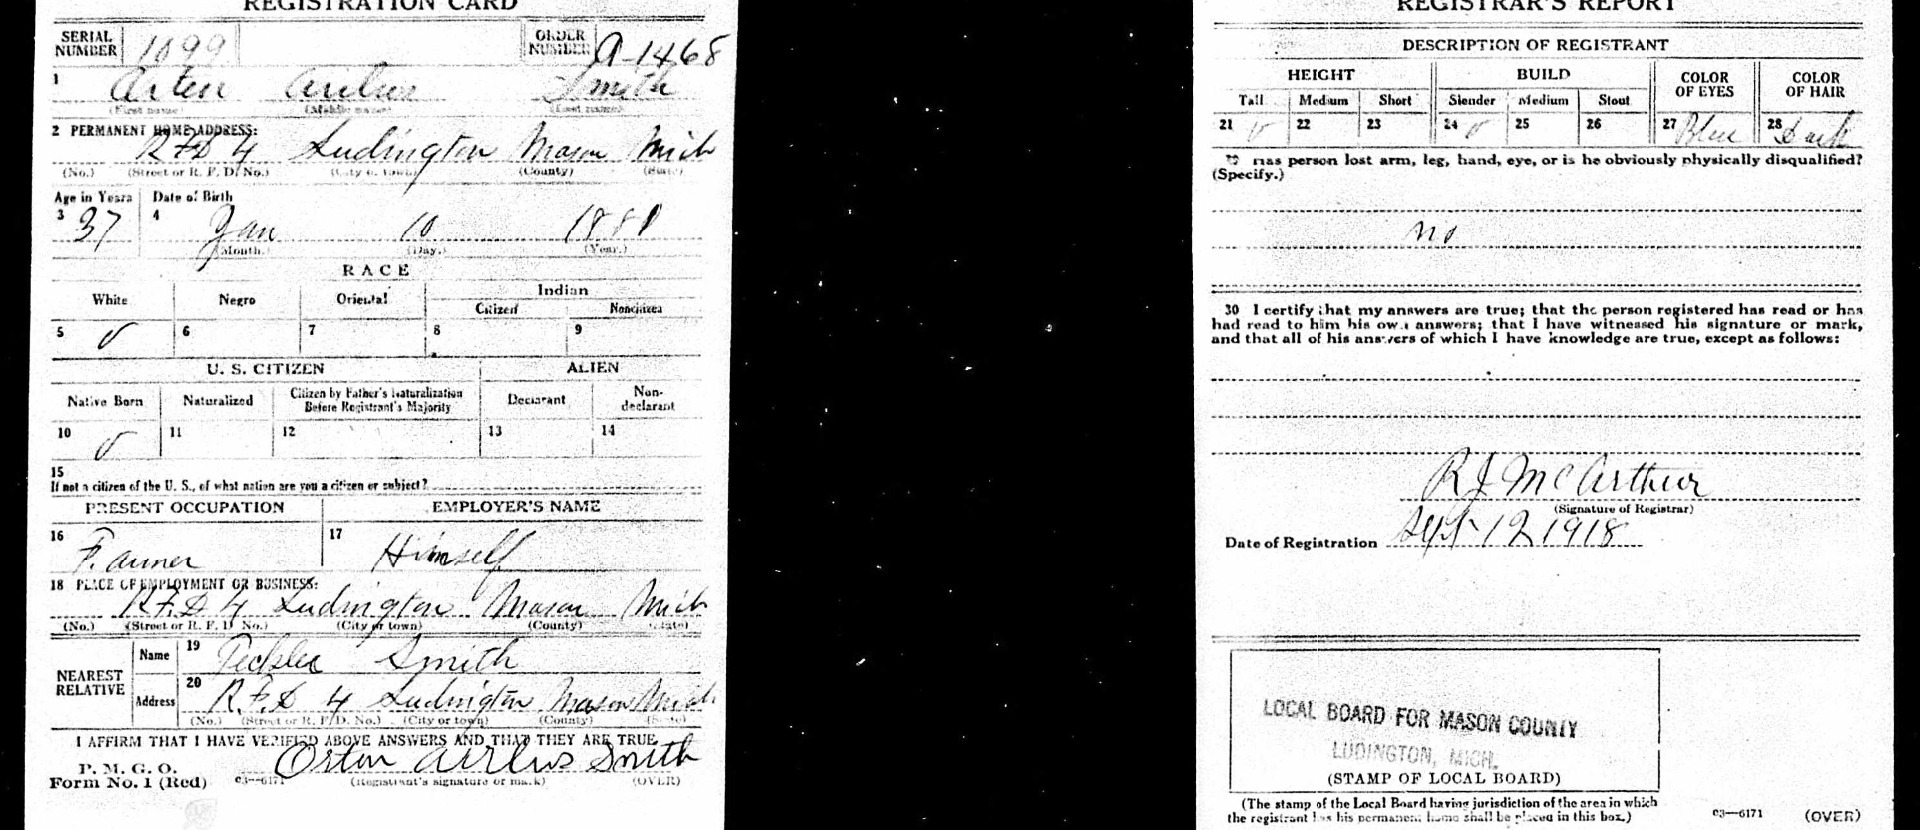 REGISTRATION CARD
SERIAL NUMBER 1099 ORDER NUMBER A-1468
1 Arten Airlius Smith
(First name) (Middle name) (Last name)
2 PERMANENT HOME ADDRESS:
R.F.D 4 Ludington Mason Mich
(No.) (Street or R. F. D. No.) (City or town) (County) (State)
Age in Years Date of Birth
3 37 4 Jan 10 1881
(Month.) (Day.) (Year.)
RACE
White Negro Oriental Indian
Citizen Noncitizen
5 6 7 8 9
U. S. CITIZEN ALIEN
Native Born Naturalized Citizen by Father's Naturalization Before Registrant's Majority Declarant Non-declarant
10 11 12 13 14
15
If not a citizen of the U. S., of what nation are you a citizen or subject?
PRESENT OCCUPATION EMPLOYER'S NAME
16 Farmer 17 Himself
18 PLACE OF EMPLOYMENT OR BUSINESS:
R.F.D 4 Ludington Mason Mich
(No.) (Street or R. F. D. No.) (City or town) (County) (State)
NEAREST RELATIVE
Name 19 Smith
Address 20 R.F.D 4 Ludington Mason Mich
(No.) (Street or R. F. D. No.) (City or town) (County) (State)
I AFFIRM THAT I HAVE VERIFIED ABOVE ANSWERS AND THAT THEY ARE TRUE
P. M. G. O.
Form No. 1 (Red) 03—6171 Orten Airlius Smith
(Registrant's signature or mark) (OVER)
REGISTRAR'S REPORT
DESCRIPTION OF REGISTRANT
HEIGHT BUILD COLOR OF EYES COLOR OF HAIR
Tall Medium Short Slender Medium Stout
21 22 23 24 25 26 27 Blue 28 Dark
29 Has person lost arm, leg, hand, eye, or is he obviously physically disqualified?
(Specify.)
no
30 I certify that my answers are true; that the person registered has read or has
had read to him his own answers; that I have witnessed his signature or mark,
and that all of his answers of which I have knowledge are true, except as follows:
R J McArthur
(Signature of Registrar)
Date of Registration Sept 12 1918
LOCAL BOARD FOR MASON COUNTY
LUDINGTON, MICH.
(STAMP OF LOCAL BOARD)
(The stamp of the Local Board having jurisdiction of the area in which
the registrant has his permanent home shall be placed in this box.)
03—6171 (OVER)